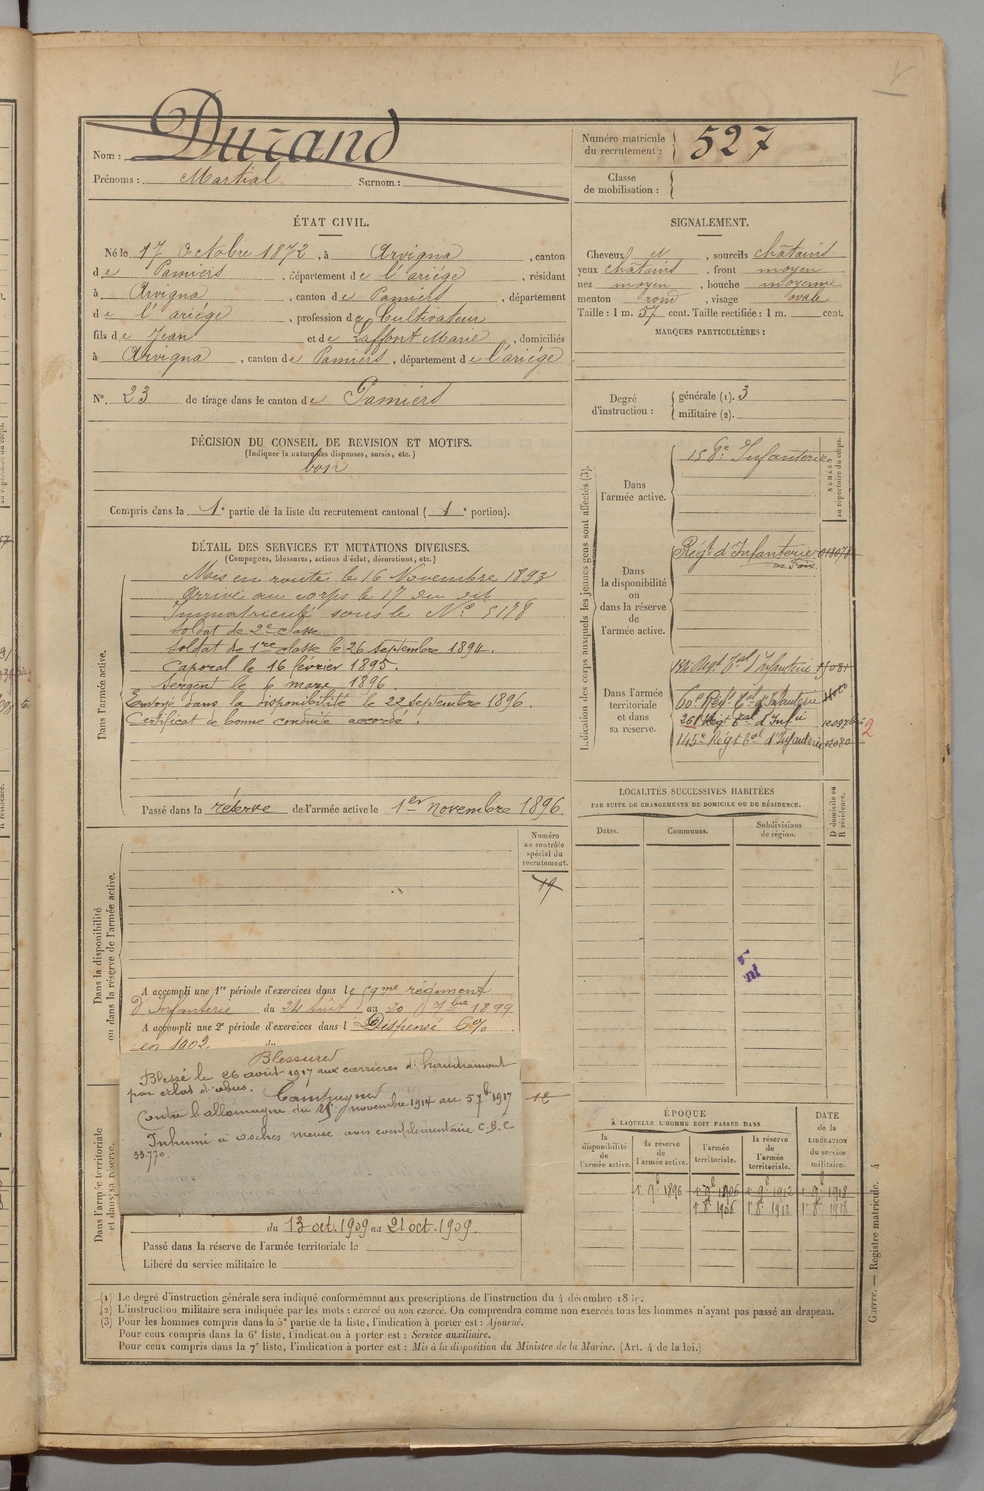 Nom : Durand
Prénoms : Martial Surnom :
Numéro matricule du recrutement : 527
Classe de mobilisation :
ÉTAT CIVIL.
Né le 17 Octobre 1872, à Arvigna, canton
de Pamiers, département de l'ariége, résidant
à Arvigna, canton de Pamiers, département
de l'ariége, profession de Cultivateur
fils de Jean et de Laffont Marie, domiciliés
à Arvigna, canton de Pamiers, département de l'ariége
N°. 23 de tirage dans le canton de Pamiers
DÉCISION DU CONSEIL DE REVISION ET MOTIFS.
(Indiquer la nature des dispenses, sursis, etc.)
bon
Compris dans la 1e partie de la liste du recrutement cantonal (1e portion).
SIGNALEMENT.
Cheveux et, sourcils châtains
yeux châtains, front moyen
nez moyen, bouche moyenne
menton rond, visage ovale
Taille : 1 m. 57 cent. Taille rectifiée : 1 m. cent.
MARQUES PARTICULIÈRES :
Degré d'instruction : générale (1). 3
militaire (2).
DÉTAIL DES SERVICES ET MUTATIONS DIVERSES.
(Campagnes, blessures, actions d'éclat, décorations, etc.)
Dans l'armée active.
Mis en route le 16 Novembre 1893
arrivé au corps le 17 du dit
Immatriculé sous le N° 5178
Soldat de 2e classe
Soldat de 1re classe le 26 septembre 1894.
Caporal le 16 février 1895.
Sergent le 6 mars 1896
Envoyé dans la disponibilité le 22 septembre 1896.
Certificat de bonne conduite accordé !
Passé dans la réserve de l'armée active le 1er novembre 1896
Indication des corps auxquels les jeunes gens sont affectés (3).
NUMÉRO au répertoire du corps.
Dans l'armée active.
Infanterie
Dans la disponibilité ou dans la réserve de l'armée active.
Régt d'Infanterie
de Foix
Dans l'armée territoriale et dans sa réserve.
Régt tal d'Infanterie
60e Régt tal d'Infanterie
261 Régt tal d'Inf ie
2
145e Régt tal d'Infanterie
LOCALITÉS SUCCESSIVES HABITÉES
PAR SUITE DE CHANGEMENTS DE DOMICILE OU DE RÉSIDENCE.
Dates. Communes. Subdivisions de région. D domicile ou R résidence.
Dans la disponibilité ou dans la réserve de l'armée active.
Numéro au contrôle spécial du recrutement.
A accompli une 1re période d'exercices dans le 59me régiment
d'Infanterie du 24 août au 20 7bre 1899
A accompli une 2e période d'exercices dans l Dispensé 6%
en 1902 du
Blessures
Blessé le 26 août 1917 aux carrières d'haudremont
par éclat d'obus.
Campagnes
Contre l'allemagne du 25 novembre 1914 au 5 7b 1917
Inhumé à Osches meuse avis complementaire C.B.C
33.770.
Dans l'armée territoriale et dans sa réserve.
du 13 oct. 1909 au 21 oct. 1909.
Passé dans la réserve de l'armée territoriale le
Libéré du service militaire le
ÉPOQUE
À LAQUELLE L'HOMME DOIT PASSER DANS
DATE de la LIBÉRATION du service militaire.
la disponibilité de l'armée active. la réserve de l'armée active. l'armée territoriale. la réserve de l'armée territoriale.
1r 9b 1896 1r 9b 1906 1r 9b 1912 1r 9b 1918
1r 8b 1906 1r 8b 1912 1r 8b 1918
(1) Le degré d'instruction générale sera indiqué conformément aux prescriptions de l'instruction du 4 décembre
(2) L'instruction militaire sera indiquée par les mots : exercé ou non exercé. On comprendra comme non exercés tous les hommes n'ayant pas passé au drapeau.
(3) Pour les hommes compris dans la 5e partie de la liste, l'indication à porter est : Ajourné.
Pour ceux compris dans la 6e liste, l'indication à porter est : Service auxiliaire.
Pour ceux compris dans la 7e liste, l'indication à porter est : Mis à la disposition du Ministre de la Marine. (Art. 4 de la loi.)
Guerre. — Registre matricule. 4